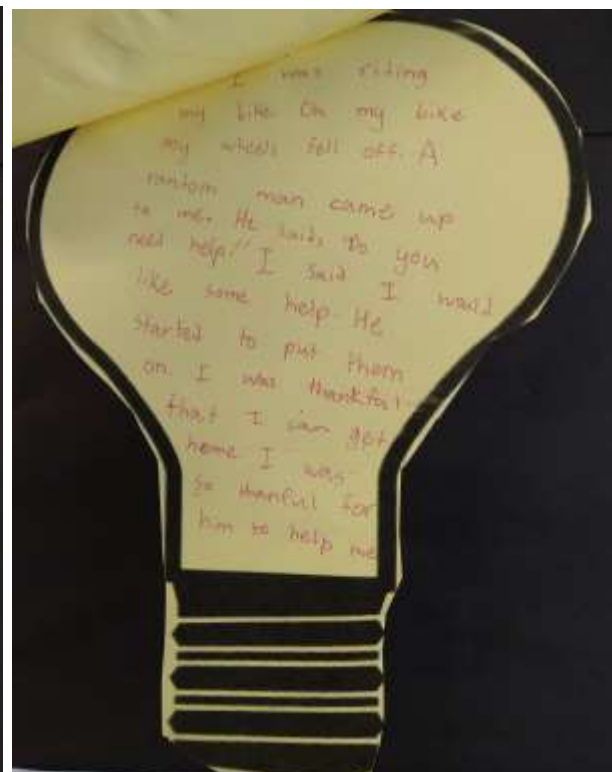 I was riding
my bike On my bike
my wheels fell off. A
random man came up
to me. He said, Do you
need help." I said I would
like some help. He
started to put them
on. I was thankful
that I can get
home I was
so thanful for
him to help me